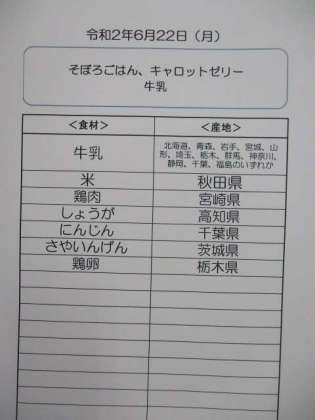 令和2年6月22日（月）
そぼろごはん、キャロットゼリー
牛乳
＜食材＞ ＜産地＞
牛乳 北海道、青森、岩手、宮城、山
形、埼玉、栃木、群馬、神奈川、
静岡、千葉、福島のいずれか
米 秋田県
鶏肉 宮崎県
しょうが 高知県
にんじん 千葉県
さやいんげん 茨城県
鶏卵 栃木県